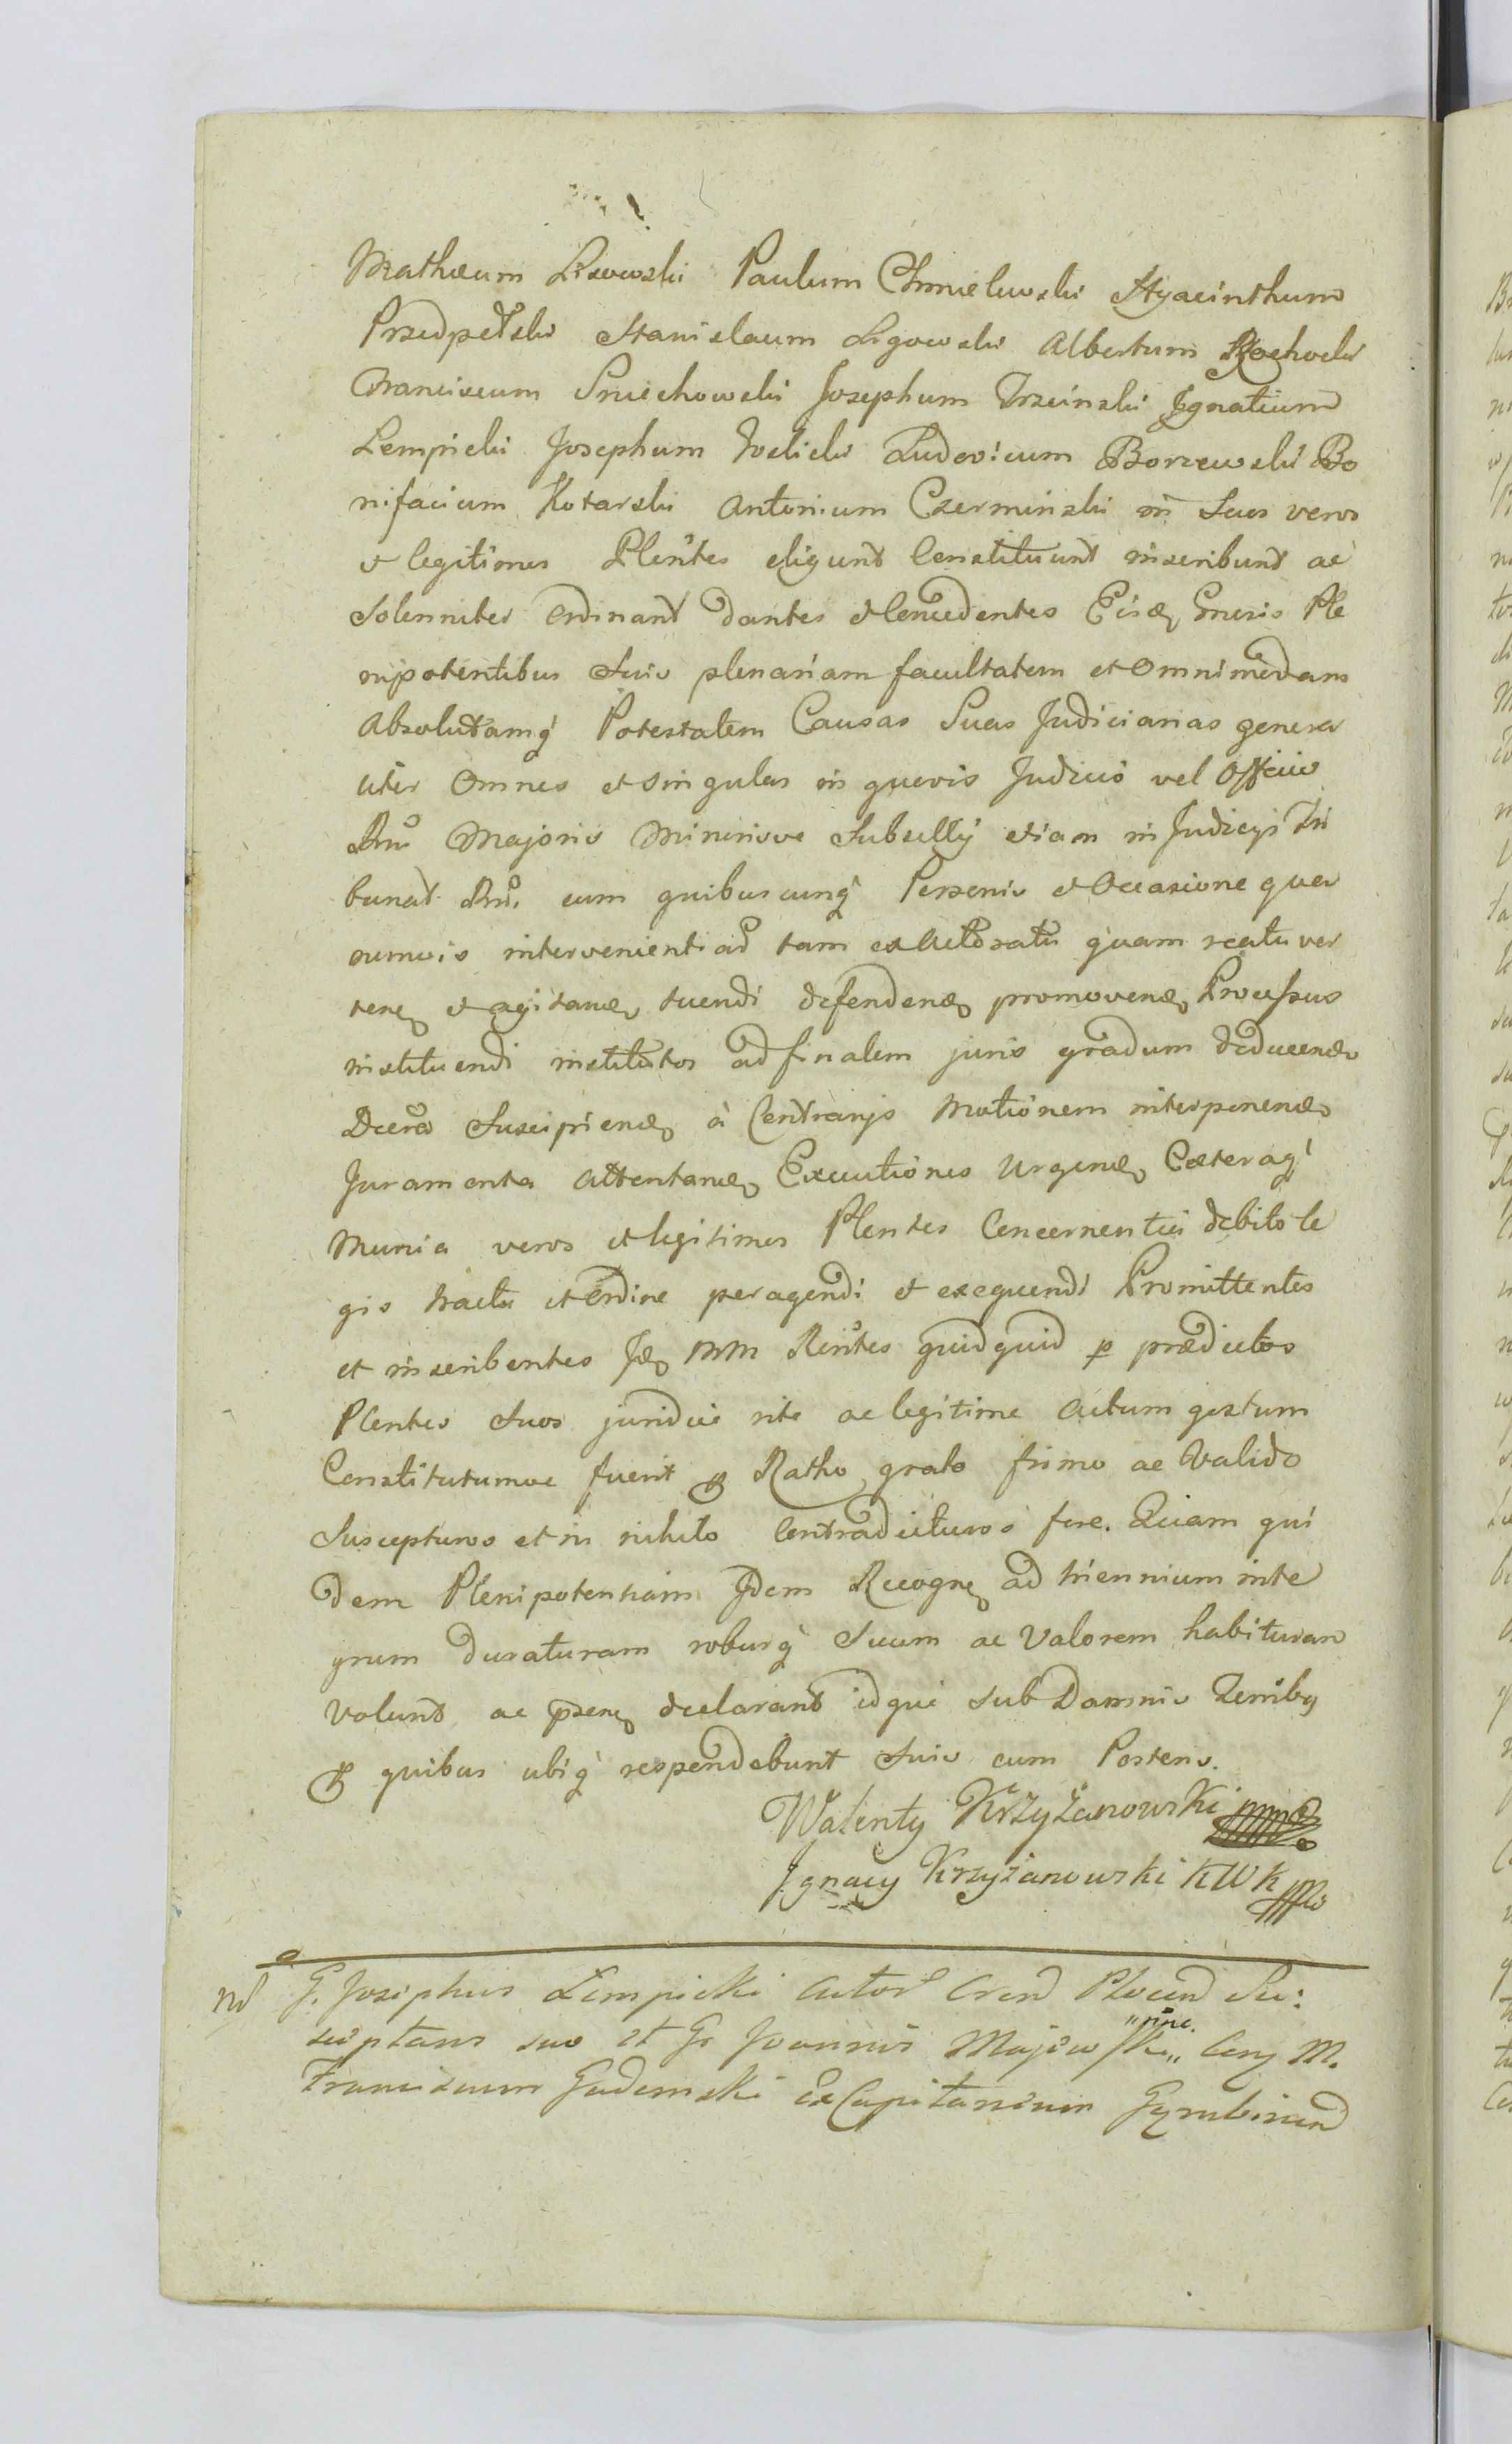 Mathæum Lisowski Paulum Chmielewski Hyacinthum
Przedpełski Stanislaum Ligowski Albertum Rochocki
Franciscum Smiechowski Josephum Trzcinski Ignatium
Lempicki Josephum Ludovicum Borzewski Bo
nifacium Kotarski Antonium Czerminski in Suos veros
et legitimos Plentes eligunt Constituunt inscribunt ac
Solenniter Ordinant dantes et Concedentes Plë
nipotentibus Suis plenariam facultatem et Omnimodam
Absolutamq́ Potestatem Causas Suas Judiciarias genera
liter Omnes et Singulas in quovis Judicio vel Officio
Majoris Minorisve Subsellÿ etiam in Judicÿs Tri
bunal cum quibuscunq́ Personis et Occasione quor
umvis intervenient ad tam ex Actoratu quam reatu ver
ten et agitand tuendi defendend promovend Processus
instituendi institutos ad finalem juris gradum deducend
Decreta Suscipiend à Contrarÿs Motionem interponend
Juramenta Attentand Executiones Urgend Cæteraq́
Munia veros et legitimos Plentes Concernentia debito le
gis tractu et Ordine peragendi et exequendi Promittentes
et inscribentes MM Rentes quidquid p prædictos
Plentes Suos juridice rite ac legitime Actum gestum
Constitutumve fuerit p Ratho grato firmo ac Valido
Suscepturos et in nihilo Contradicturos fore. Quam qui
dem Plenipotentiam Jidem Recogn ad triennium inte
grum duraturam roburq́ Suum ac Valorem habituram
Volunt ac declarant idque Sub Damnis
p quibus ubiq́ respondebunt Suis cum Posteris.
Walenty Krzyżanowski mp
Jgnacy Krzyżanowski KWK mp
G. Josephus Lempicki Actor Sus:
ceptans suo et Gr Joannis Majewski M.
Franciscum Gadomski ExCapitaneum Gymbinen